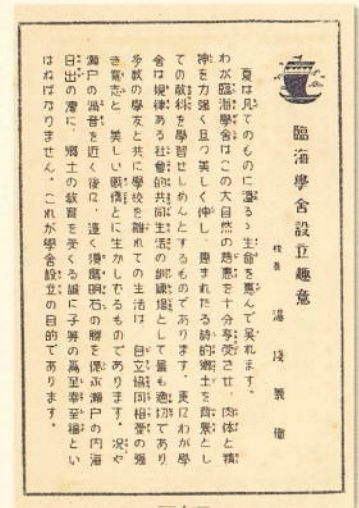 臨海學舍設立趣意
校長　湯淺義衞
夏は凡てのものに溢るゝ生命を惠んで吳れます。
わが臨海學舍はこの大自然の慈惠を十分享受させ、肉体と精
神を力强く且つ美しく伸し、惠まれたる詩的鄕土を背景とし
ての敎科を學習せしめんとするものであります。更にわが學
舍は規律ある社會的共同生活の訓練場として最も適切であり
多數の學友と共に學校を離れての生活は、自立協同相愛の强
き意志と、美しい感情とに生かしむるものであります。況や
瀨戶の渦音を近く後に、遠く須磨明石の勝を偲ぶ瀨戶の內海
日出の濱に、鄕士の敎育を受くる誠に子等の爲至幸至福とい
はねばなりません。これが學舍設立の目的であります。